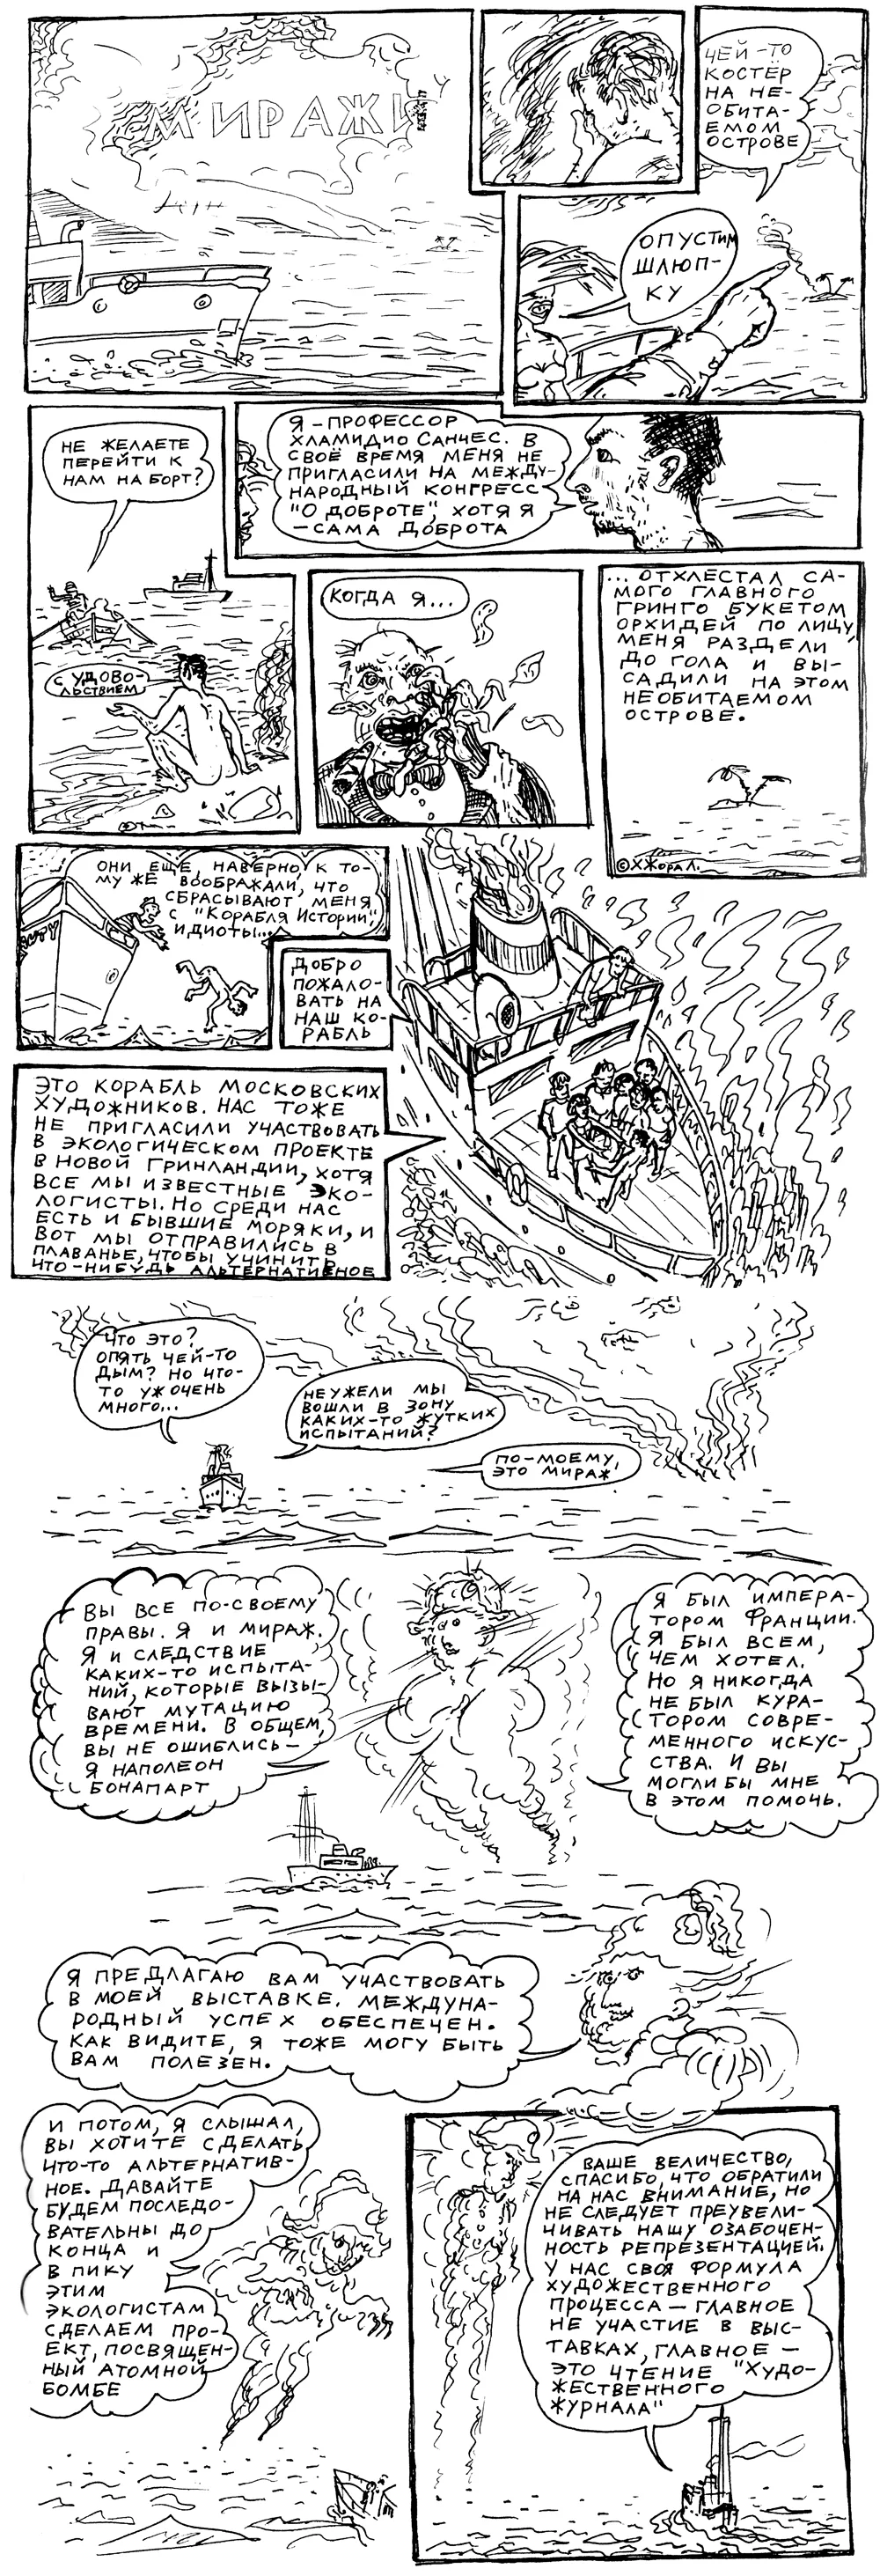 МИРАЖИ
ЧЕЙ-ТО
КОСТЁР
НА НЕ-
ОБИТА-
ЕМОМ
ОСТРОВЕ
ОПУСТИМ
ШЛЮП-
КУ
НЕ ЖЕЛАЕТЕ
ПЕРЕЙТИ К
НАМ НА БОРТ?
С УДОВО-
ЛЬСТВИЕМ
Я - ПРОФЕССОР
ХЛАМИДИО САНЧЕС. В
СВОЁ ВРЕМЯ МЕНЯ НЕ
ПРИГЛАСИЛИ НА МЕЖДУ-
НАРОДНЫЙ КОНГРЕСС
"О ДОБРОТЕ", ХОТЯ Я
- САМА ДОБРОТА
КОГДА Я...
... ОТХЛЕСТАЛ СА-
МОГО ГЛАВНОГО
ГРИНГО БУКЕТОМ
ОРХИДЕЙ ПО ЛИЦУ,
МЕНЯ РАЗДЕЛИ
ДО ГОЛА И ВЫ-
САДИЛИ НА ЭТОМ
НЕОБИТАЕМОМ
ОСТРОВЕ.
©ХЖОРА Л.
ОНИ ЕЩЕ, НАВЕРНО, К ТО-
МУ ЖЕ ВООБРАЖАЛИ, ЧТО
СБРАСЫВАЮТ МЕНЯ
С "КОРАБЛЯ ИСТОРИИ",
ИДИОТЫ...
ДОБРО
ПОЖАЛО-
ВАТЬ НА
НАШ КО-
РАБЛЬ
ЭТО КОРАБЛЬ МОСКОВСКИХ
ХУДОЖНИКОВ. НАС ТОЖЕ
НЕ ПРИГЛАСИЛИ УЧАСТВОВАТЬ
В ЭКОЛОГИЧЕСКОМ ПРОЕКТЕ
В НОВОЙ ГРИНЛАНДИИ, ХОТЯ
ВСЕ МЫ ИЗВЕСТНЫЕ ЭКО-
ЛОГИСТЫ. НО СРЕДИ НАС
ЕСТЬ И БЫВШИЕ МОРЯКИ, И
ВОТ МЫ ОТПРАВИЛИСЬ В
ПЛАВАНЬЕ, ЧТОБЫ УЧИНИТЬ
ЧТО-НИБУДЬ АЛЬТЕРНАТИВНОЕ
ЧТО ЭТО?
ОПЯТЬ ЧЕЙ-ТО
ДЫМ? НО ЧТО-
ТО УЖ ОЧЕНЬ
МНОГО...
НЕУЖЕЛИ МЫ
ВОШЛИ В ЗОНУ
КАКИХ-ТО ЖУТКИХ
ИСПЫТАНИЙ?
ПО-МОЕМУ,
ЭТО МИРАЖ
ВЫ ВСЕ ПО-СВОЕМУ
ПРАВЫ. Я И МИРАЖ.
Я И СЛЕДСТВИЕ
КАКИХ-ТО ИСПЫТА-
НИЙ, КОТОРЫЕ ВЫЗЫ-
ВАЮТ МУТАЦИЮ
ВРЕМЕНИ. В ОБЩЕМ,
ВЫ НЕ ОШИБЛИСЬ -
Я НАПОЛЕОН
БОНАПАРТ
Я БЫЛ ИМПЕРА-
ТОРОМ ФРАНЦИИ.
Я БЫЛ ВСЕМ,
ЧЕМ ХОТЕЛ.
НО Я НИКОГДА
НЕ БЫЛ КУРА-
ТОРОМ СОВРЕ-
МЕННОГО ИСКУС-
СТВА. И ВЫ
МОГЛИ БЫ МНЕ
В ЭТОМ ПОМОЧЬ.
Я ПРЕДЛАГАЮ ВАМ УЧАСТВОВАТЬ
В МОЕЙ ВЫСТАВКЕ. МЕЖДУНА-
РОДНЫЙ УСПЕХ ОБЕСПЕЧЕН.
КАК ВИДИТЕ, Я ТОЖЕ МОГУ БЫТЬ
ВАМ ПОЛЕЗЕН.
И ПОТОМ, Я СЛЫШАЛ,
ВЫ ХОТИТЕ СДЕЛАТЬ
ЧТО-ТО АЛЬТЕРНАТИВ-
НОЕ. ДАВАЙТЕ
БУДЕМ ПОСЛЕДО-
ВАТЕЛЬНЫ ДО
КОНЦА И
В ПИКУ
ЭТИМ
ЭКОЛОГИСТАМ
СДЕЛАЕМ ПРО-
ЕКТ, ПОСВЯЩЕН-
НЫЙ АТОМНОЙ
БОМБЕ
ВАШЕ ВЕЛИЧЕСТВО,
СПАСИБО, ЧТО ОБРАТИЛИ
НА НАС ВНИМАНИЕ, НО
НЕ СЛЕДУЕТ ПРЕУВЕЛИ-
ЧИВАТЬ НАШУ ОЗАБОЧЕН-
НОСТЬ РЕПРЕЗЕНТАЦИЕЙ.
У НАС СВОЯ ФОРМУЛА
ХУДОЖЕСТВЕННОГО
ПРОЦЕССА - ГЛАВНОЕ
НЕ УЧАСТИЕ В ВЫС-
ТАВКАХ, ГЛАВНОЕ -
ЭТО ЧТЕНИЕ "ХУДО-
ЖЕСТВЕННОГО
ЖУРНАЛА"